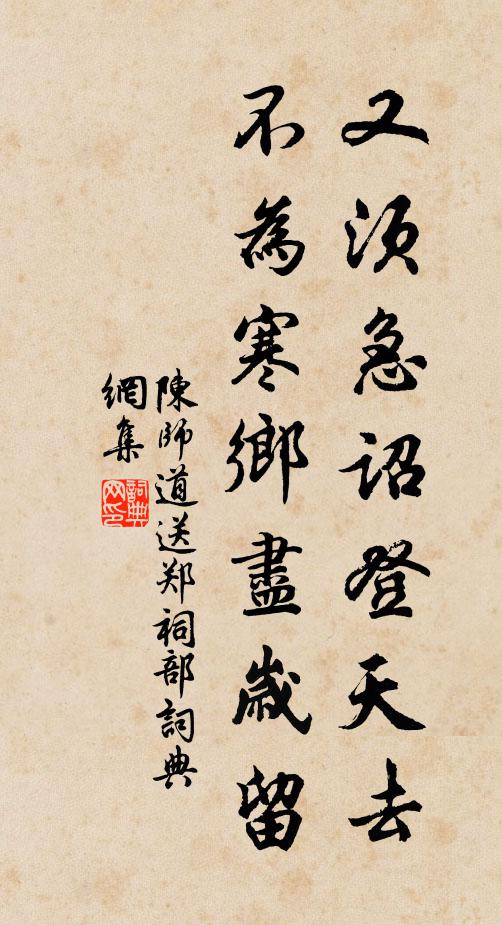 又须急詔登天去
不為寒鄉盡歲留
陳師道送郑祠部詞典
網集
詞典
网印